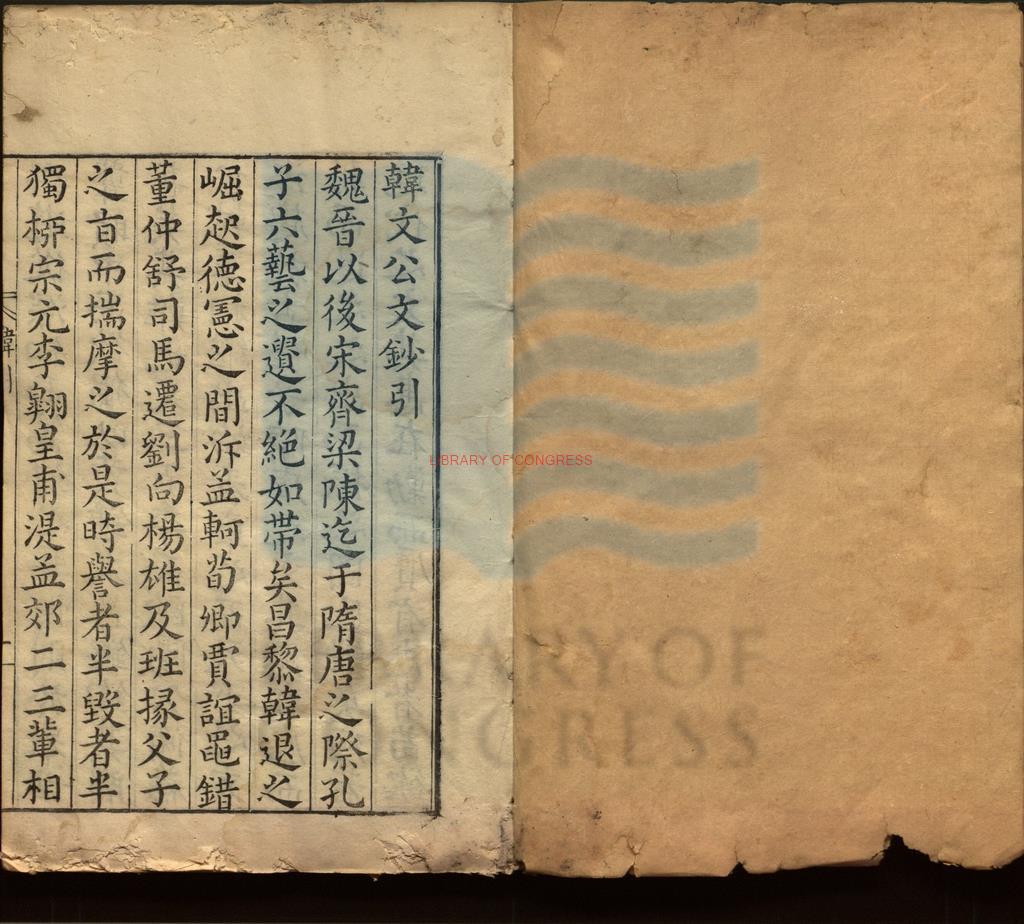 韓文公文鈔引
魏晉以後宋齊梁陳迄于隋唐之際孔
子六藝之遺不絕如帶矣昌黎韓退之
崛起德憲之間泝孟軻荀卿賈誼鼂錯
董仲舒司馬遷劉向楊雄及班掾父子
之旨而揣摩之於是時譽者半毀者半
獨桺宗元李翺皇甫湜孟郊二三輩相
韓引
LIBRARY OF CONGRESS
LIBRARY OF
CONGRESS